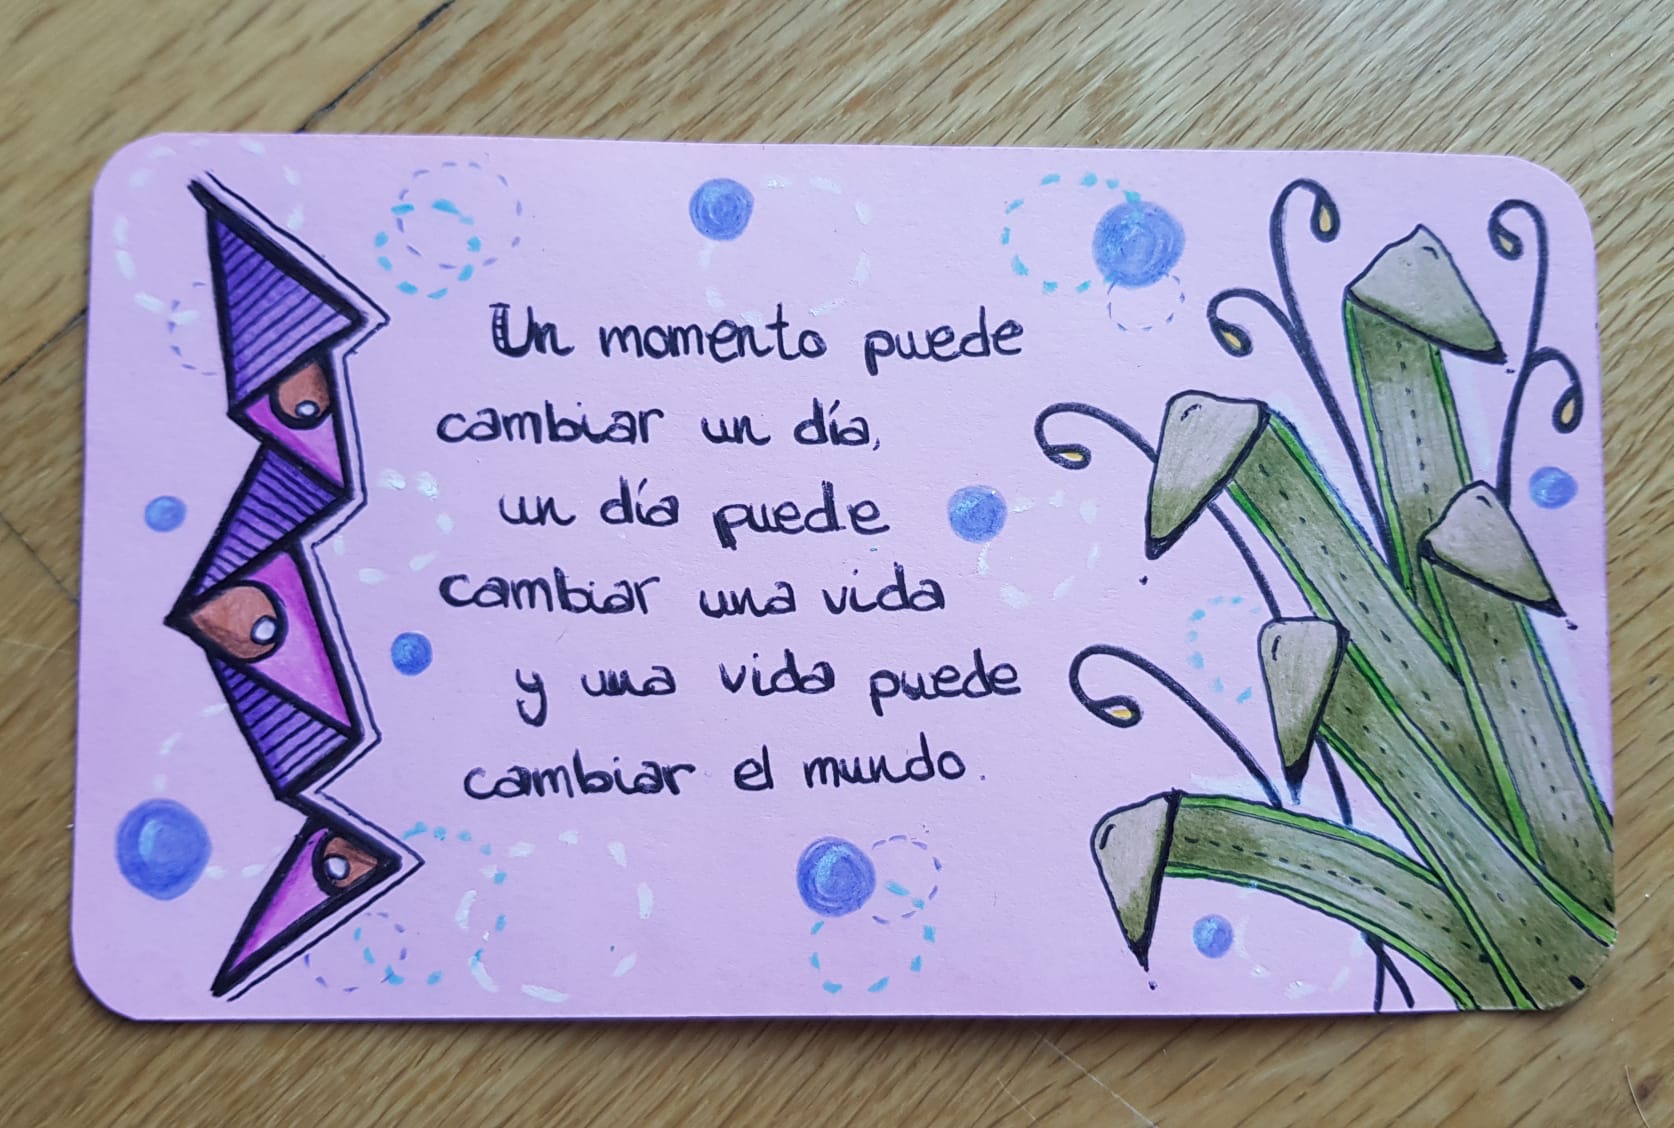 Un momento puede
cambiar un día,
un día puede
cambiar una vida
y una vida puede
cambiar el mundo.